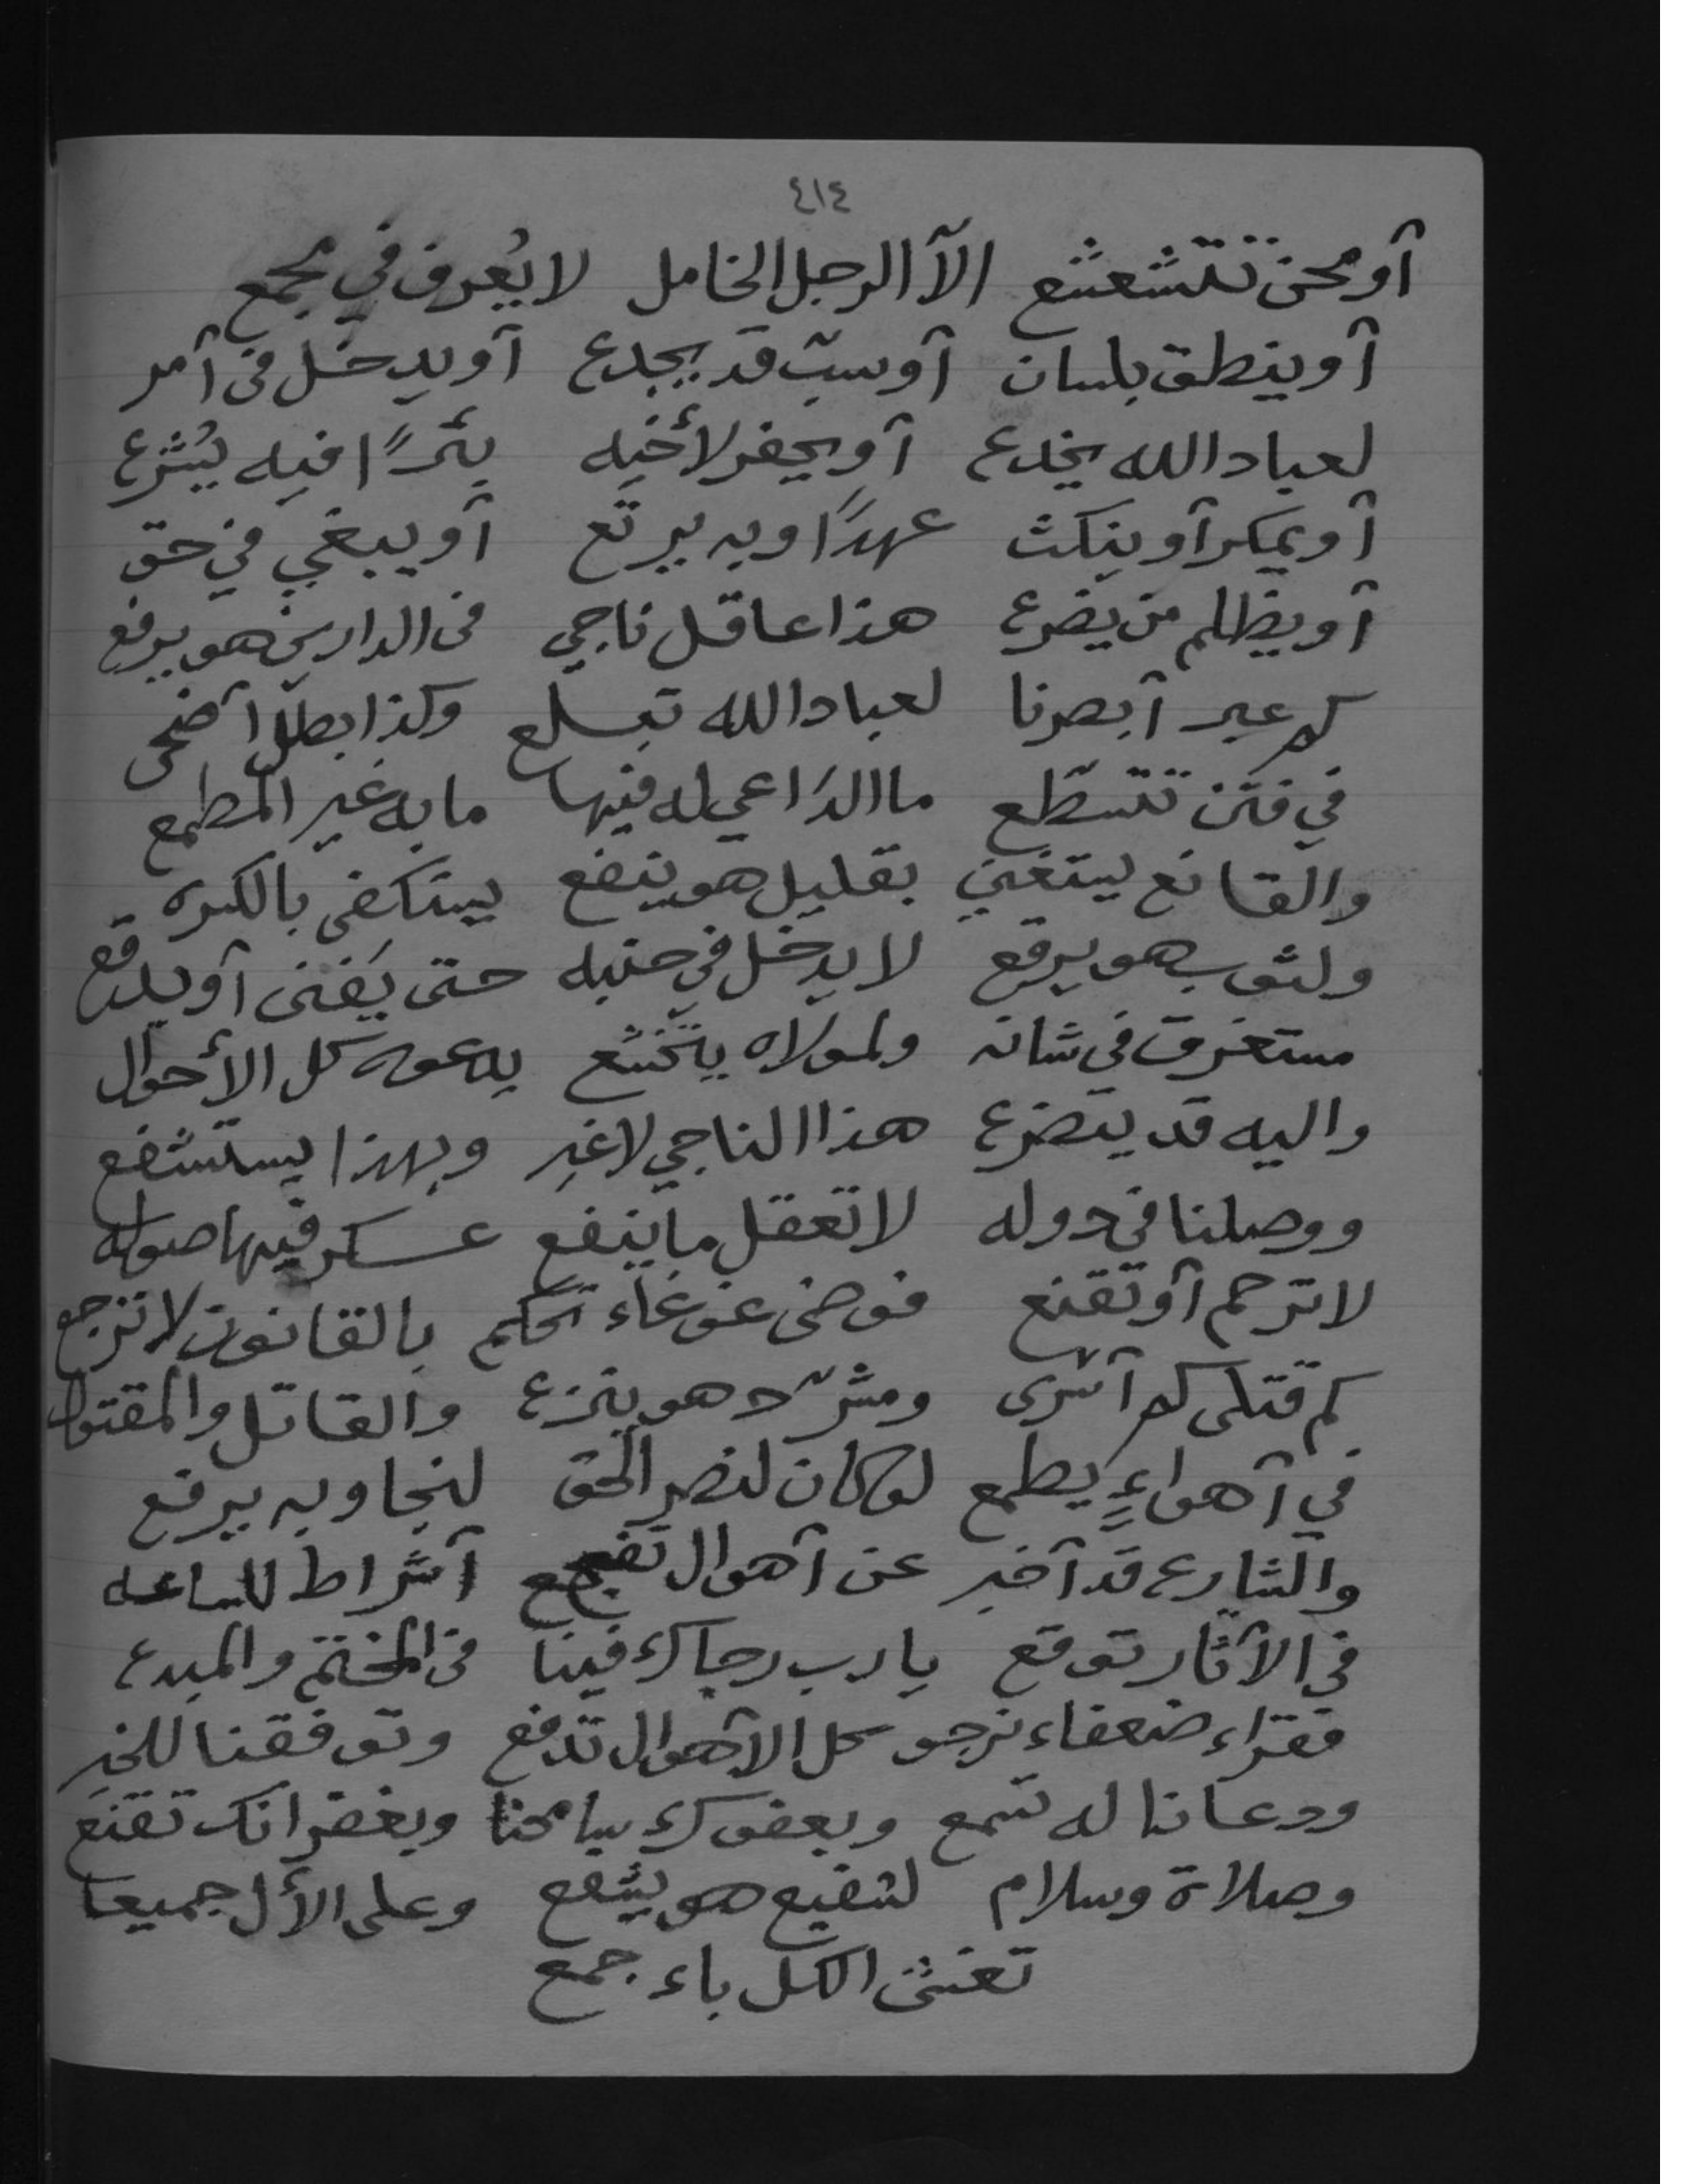 ٤١٤
أو محن تتشعشع الّا الرجل الخامل لا يُعرف في مجمع
أو ينطق بلسان أو سبّ قد يجدع أو يدخل في أمر
لعباد الله يخدع أو يحفر لأخيه بئرًا فيه يُشرع
أو يمكر أو ينكث عهدًا وبه يرتع أو يبغي في حق
أو يظلم من يضرع هذا عاقل ناجي في الدارين هو يرفع
كم عبر أبصرنا لعباد الله تبلع وكذا بطل أضحى
في فتن تتسطّع ما الدّاعي له فيها ما به غير المطمع
والقانع يستغني بقليل هو ينفع يستكفي بالكسره
ولثوب هو يرقع لا يدخل في حتى يَفنى أو يدقع
مستغرق في شانه ولمولاه يتخشّع يدعوه كل الأحوال
واليه قد يتضرع هذا الناجي لا غير وبهذا يستشفع
ووصلنا في دوله لا تعقل ما ينفع عسكر فيها صوله
لا ترحم أو تقنع فوضى غوغاء تحكم بالقانون لا ترجع
كم قتلى كم أسرى ومشرّد هو ينزع والقاتل والمقتول
في أهواءٍ يطمع لو كان لنصر الحق لنجا وبه يرفع
والشارع قد أخبر عن أهوال تفجع أشراط للساعه
في الآثار توقع يا رب رجاك فينا في المختم والمبدع
فقراء ضعفاء نرجو كل الأهوال تدفع وتوفقنا للخير
ودعانا له تسمع وبعفوك سامحنا وبغفرانك تقنع
وصلاة وسلام لشفيع هو يشفع وعلى الأل جميعا
تغشى الكل باء جمع